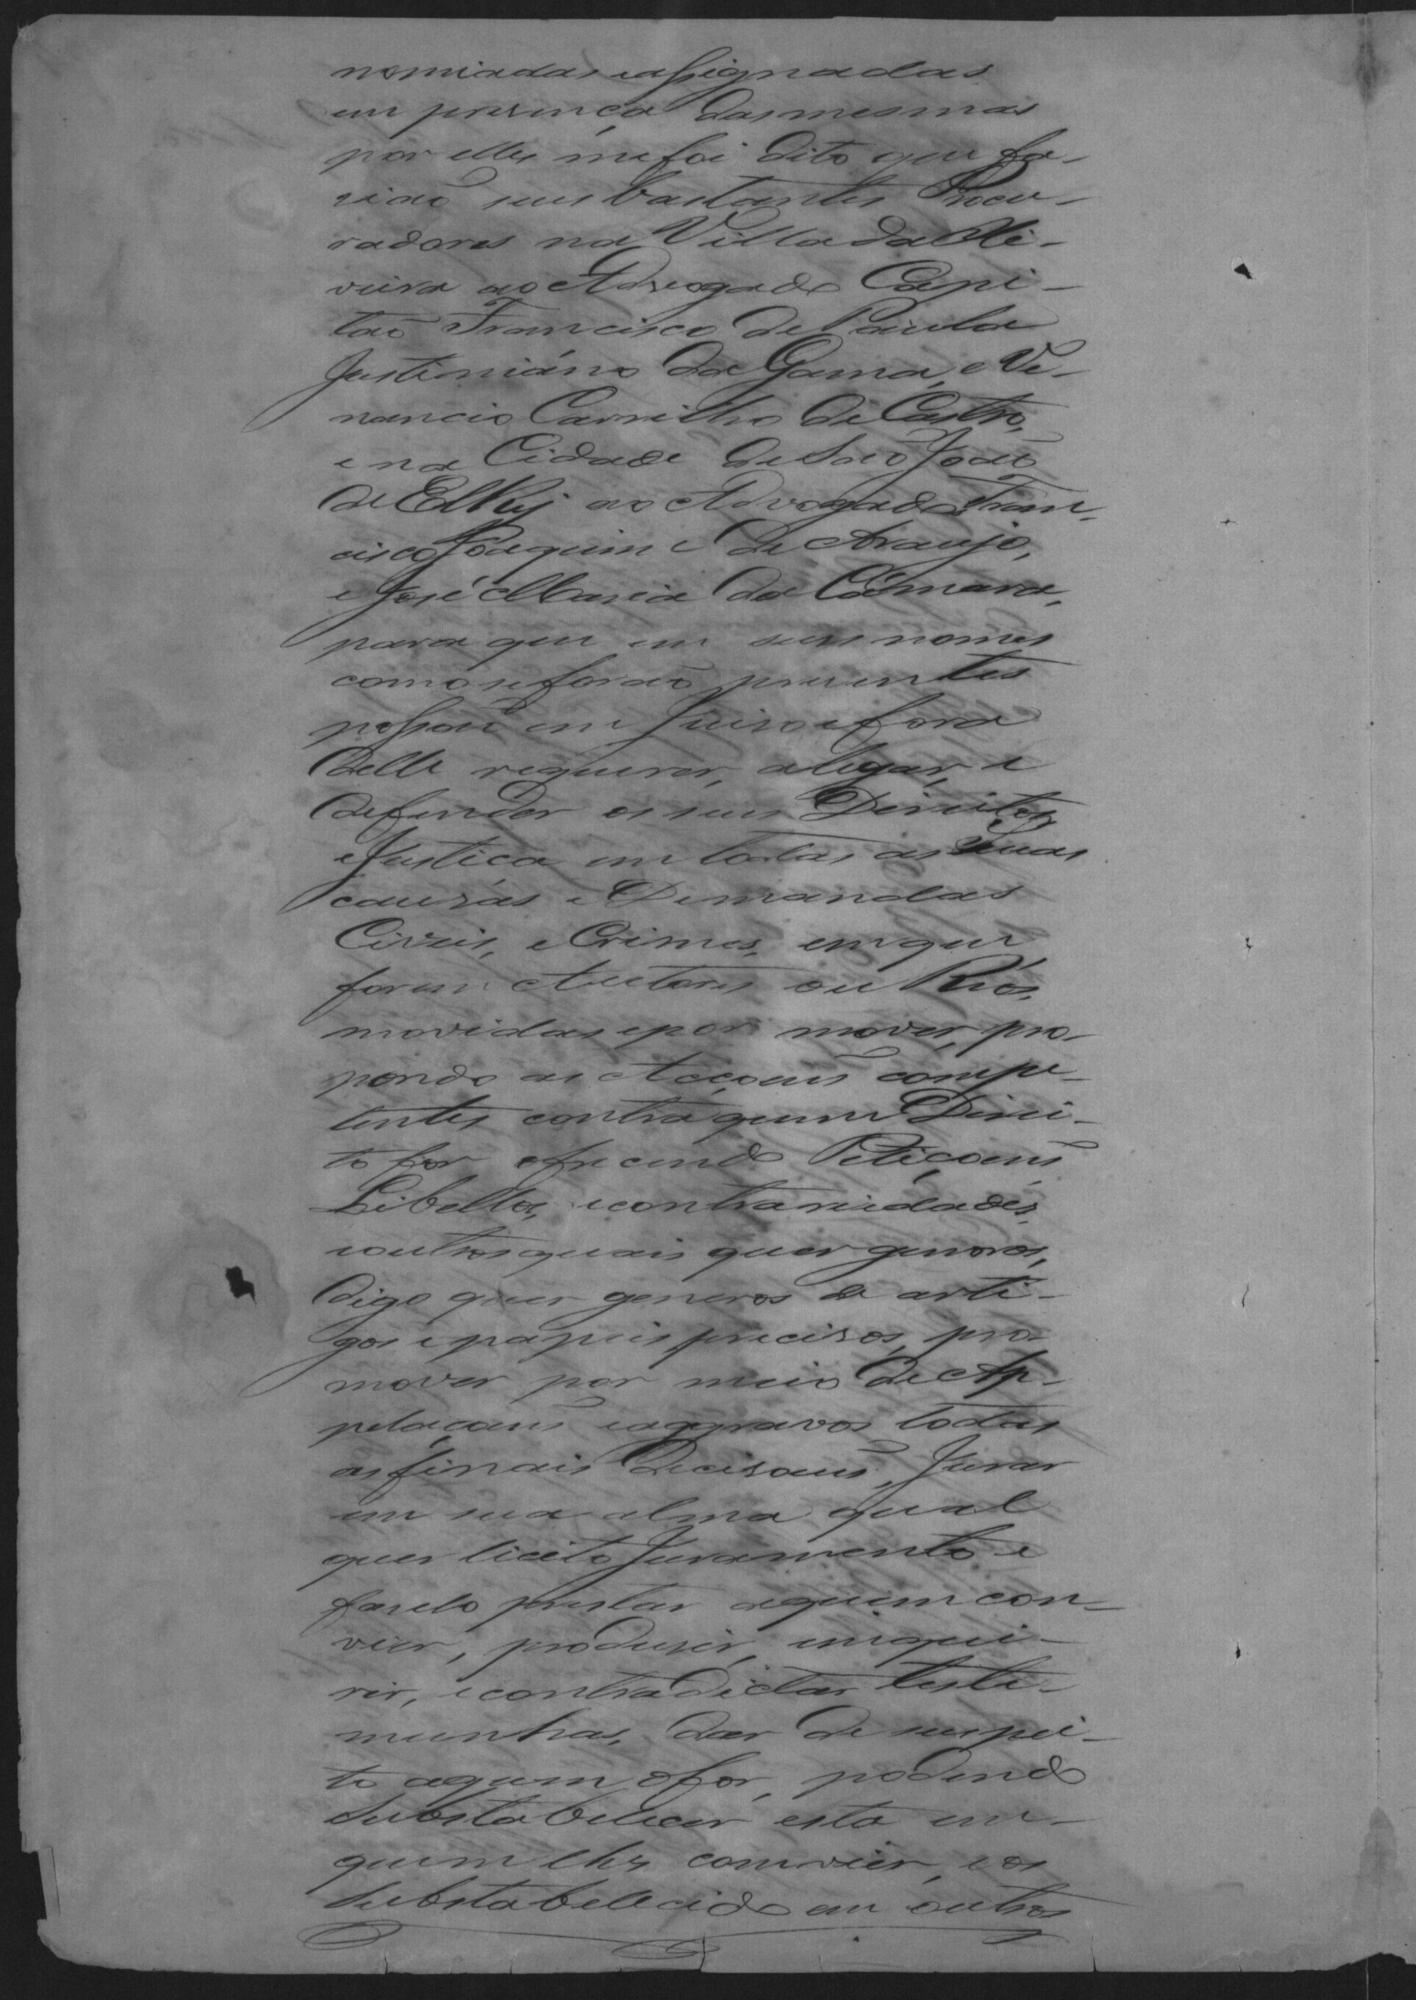 nomiadas eassignadas
em prezença dasmesmas
por elles mefoi dito que fa-
zião seus bastantes Procu-
radores na Villa da Oli-
veira ao Advogado Capi-
tão Francisco de Paula
Justiniáno da Gama, e Ve-
nancio Carrilho de Castro,
e na Cidade de São João
de ElRej ao Advogado Fran-
cisco Joaquim de Araujo,
e José Maria da Camara,
para que em seus nomes
como seforão prezentes
possão em Juizo efora
delle requerer, alegar, e
defender os seus Direitos
eJustiça em todas as Suas
cauzas e Demandas
Civeis, e Crimes, em que
forem Autores ou Réos,
movidas epor mover, pro-
pondo as Acçoens compe-
tentes contra quem Direi-
to for, ofrecendo Petiçoens
Libellos, econtrariedades,
eoutros quais quer generos,
digo quer generos de arti-
gos epapeis precizos, pro-
mover por meio de Ap-
pelaçoens eaggravos todas
as finais Decizoens, Jurar
em sua alma qual
quer licito Juramento e
fazelo prestar aquem con-
vier, produzir, inqui-
rir, e contradictar teste-
munhas, dar de suspei-
to aquem ofor, podendo
Substabelecer esta em
quem lhes convier, e os
Substabelecido em outros